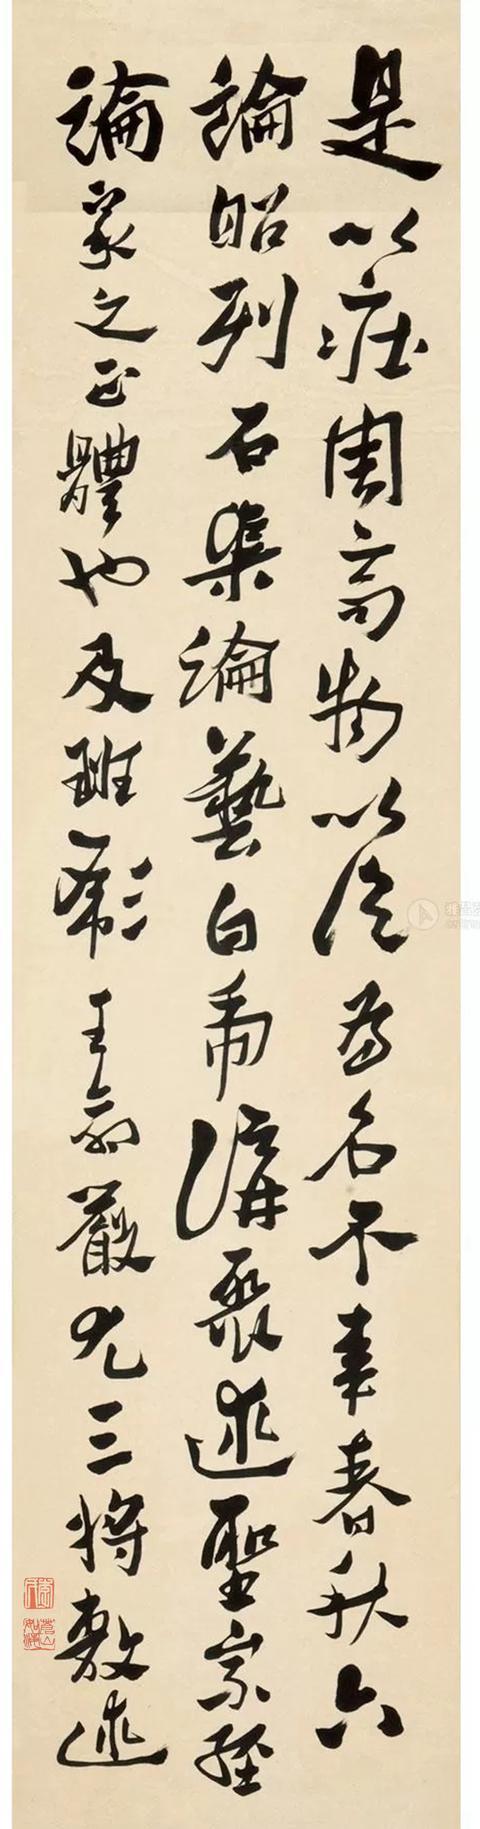 是以莊周齊物以論為名不韋春秋六
論昭列石渠論藝白虎講聚述聖宗經
論家之正體也及班彪王命嚴尤三將敷述